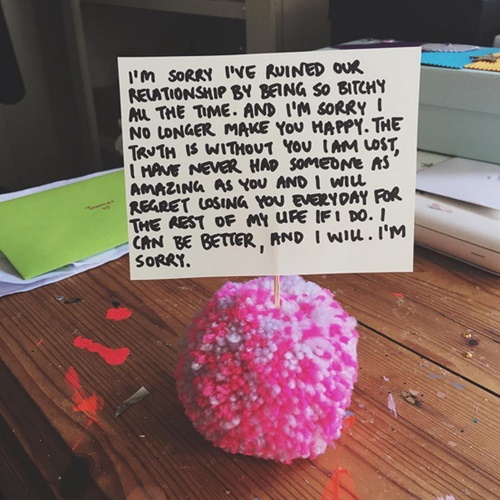 I'M SORRY I'VE RUINED OUR
RELATIONSHIP BY BEING SO BITCHY
ALL THE TIME. AND I'M SORRY I
NO LONGER MAKE YOU HAPPY. THE
TRUTH IS WITHOUT YOU I AM LOST,
I HAVE NEVER HAD SOMEONE AS
AMAZING AS YOU AND I WILL
REGRET LOSING YOU EVERYDAY FOR
THE REST OF MY LIFE IF I DO. I
CAN BE BETTER, AND I WILL. I'M
SORRY.